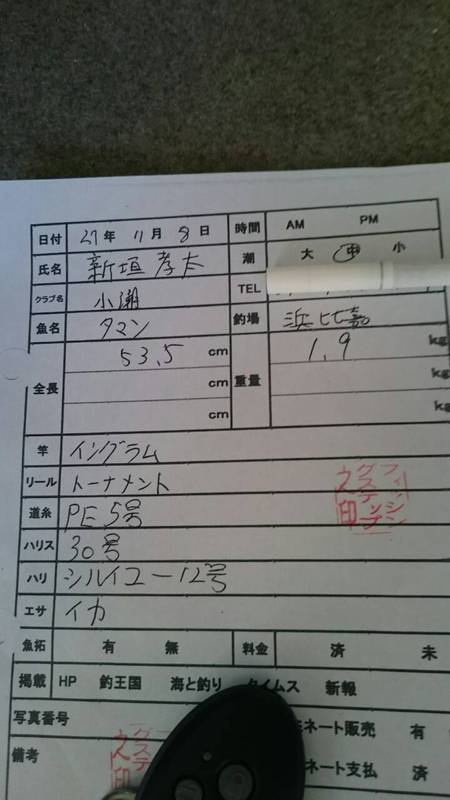 日付 27年 11月 8日 時間 AM PM
氏名 新垣孝太 潮 大 中 小
クラブ名 小潮 TEL
魚名 タマン 釣場 浜比嘉
全長 53.5 cm 重量 1.9 kg
cm kg
cm kg
竿 イングラム
リール トーナメント
道糸 PE5号
ハリス 30号
ハリ シルイユー12号
エサ イカ
魚拓 有 無 料金 済 未
掲載 HP 釣王国 海と釣り タイムス 新報
写真番号 ネット販売 有
備考 ネート支払 済